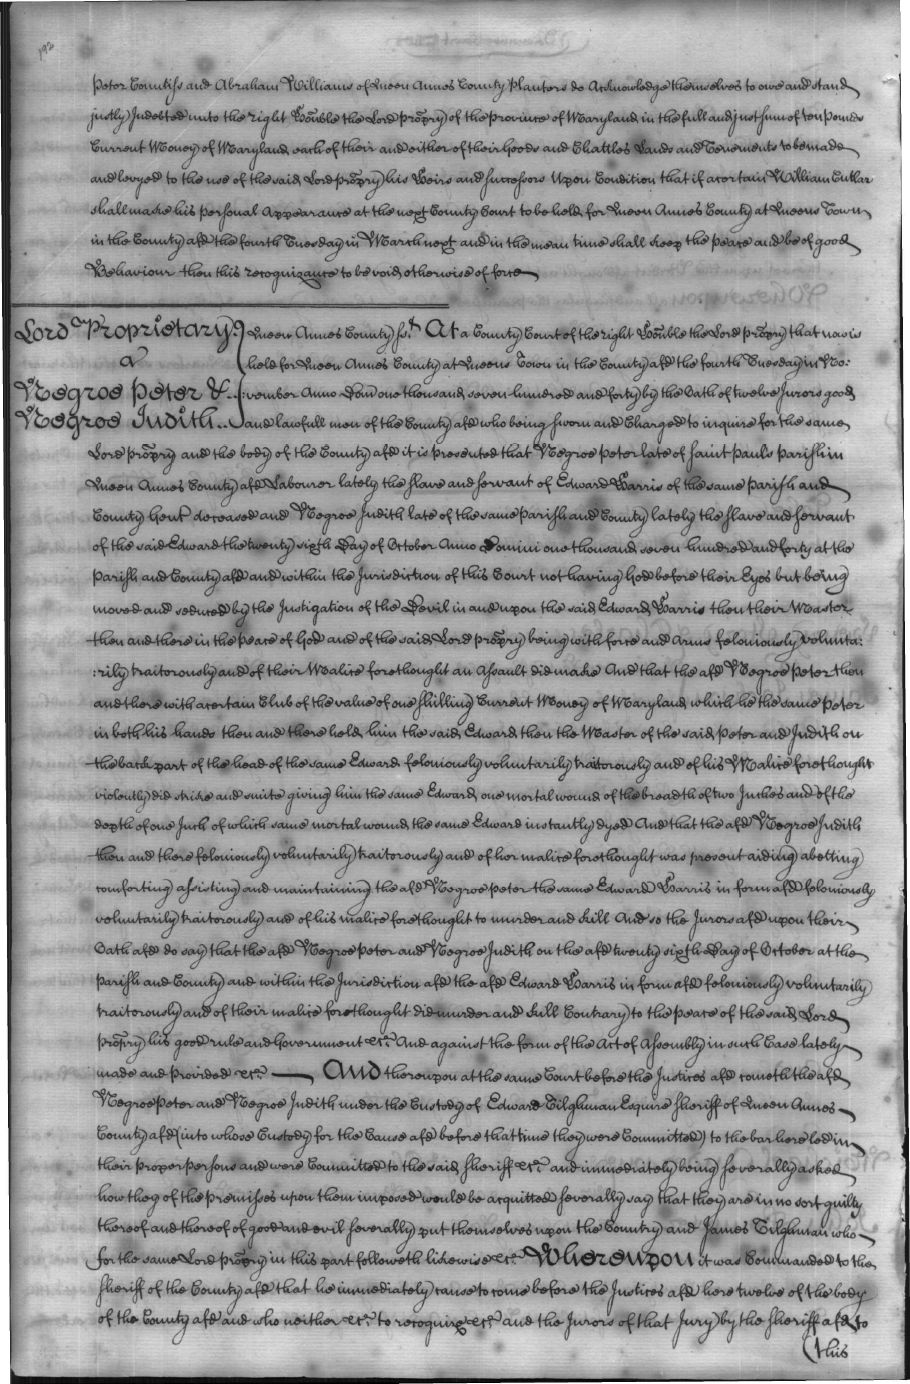 192
Peter Countiss and Abraham Williams of Queen Annes County Planters do Acknowledge themselves to owe and stand
justly Indebted unto the right Honble the Lord Propry of the Province of Maryland in the full and just sum of ten Pounds
Current Money of Maryland each of their and either of their Goods and Chattles Lands and Tenements to be made
and levyed to the use of the said Lord Propry his Heirs and successors Upon Condition that if a certain William Cutlar
shall make his personal Appearance at the next County Court to be held for Queen Annes County at Queens Town
in the County afd the fourth Tuesday in March next and in the mean time shall keep the peace and be of good
Behaviour then this recognizance to be void otherwise of force
Lord Proprietary
v
Negroe Peter &
Negroe Judith
Queen Annes County sst At a County Court of the right Honble the Lord Propry that now is
held for Queen Annes County at Queens Town in the County afd the fourth Tuesday in No:
:vember Anno Dom one thousand seven hundred and forty by the Oath of twelve Jurors good
and lawfull men of the County afd who being sworn and Charged to inquire for the same
Lord Propry and the body of the County afd it is presented that Negroe Peter late of Saint Pauls Parish in
Queen Annes County afd Labourer lately the slave and servant of Edward Harris of the same Parish and
County Gent deceased and Negroe Judith late of the same Parish and County lately the slave and servant
of the said Edward the twenty sixth Day of October Anno Domini one thousand seven hundred and forty at the
Parish and County afd and within the Jurisdiction of this Court not having God before their Eyes but being
moved and seduced by the Instigation of the Devil in and upon the said Edward Harris then their Master
then and there in the Peace of God and of the said Lord propry being with force and Arms feloniously volunta:
:rily traitorously and of their Malice forethought an Assault did make And that the afd Negroe Peter then
and there with a certain Club of the value of one shilling Current Money of Maryland which he the same Peter
in both his hands then and there held him the said Edward then the Master of the said Peter and Judith on
the back part of the head of the same Edward feloniously voluntarily traitorously and of his Malice forethought
violently did strike and smite giving him the same Edward one mortal wound of the breadth of two Inches and of the
depth of one Inch of which same mortal wound the same Edward instantly dyed And that the afd Negroe Judith
then and there feloniously voluntarily traitorously and of her malice forethought was present aiding abetting
comforting assisting and maintaining the afd Negroe Peter the same Edward Harris in form afd feloniously
voluntarily traitorously and of his malice forethought to murder and kill And so the Jurors afd upon their
Oath afd do say that the afd Negroe Peter and Negroe Judith on the afd twenty sixth Day of October at the
Parish and County and within the Jurisdiction afd the afd Edward Harris in form afd feloniously voluntarily
traitorously and of their malice forethought did murder and kill Contrary to the peace of the said Lord
Propry his good rule and Government &ca And against the form of the Act of Assembly in such Case lately
made and provided &ca And thereupon at the same Court before the Justices afd cometh the afd
Negroe Peter and Negroe Judith under the Custody of Edward Tilghman Esquire Sheriff of Queen Annes
County afd (into whose Custody for the Cause afd before that time they were Committed) to the bar here led in
their proper persons and were Committed to the said sheriff &ca and immediately being severally asked
how they of the premisses upon them imposed would be acquitted severally say that they are in no sort guilty
thereof and thereof of good and evil severally put themselves upon the Country and James Tilghman who
for the same Lord propry in this part followeth likewise &ca Whereupon it was Commanded to the
Sheriff of the County afd that he immediately cause to come before the Justices afd here twelve of the body
of the County afd and who neither &ca to recognize &ca and the Jurors of that Jury by the sheriff afd to
(this